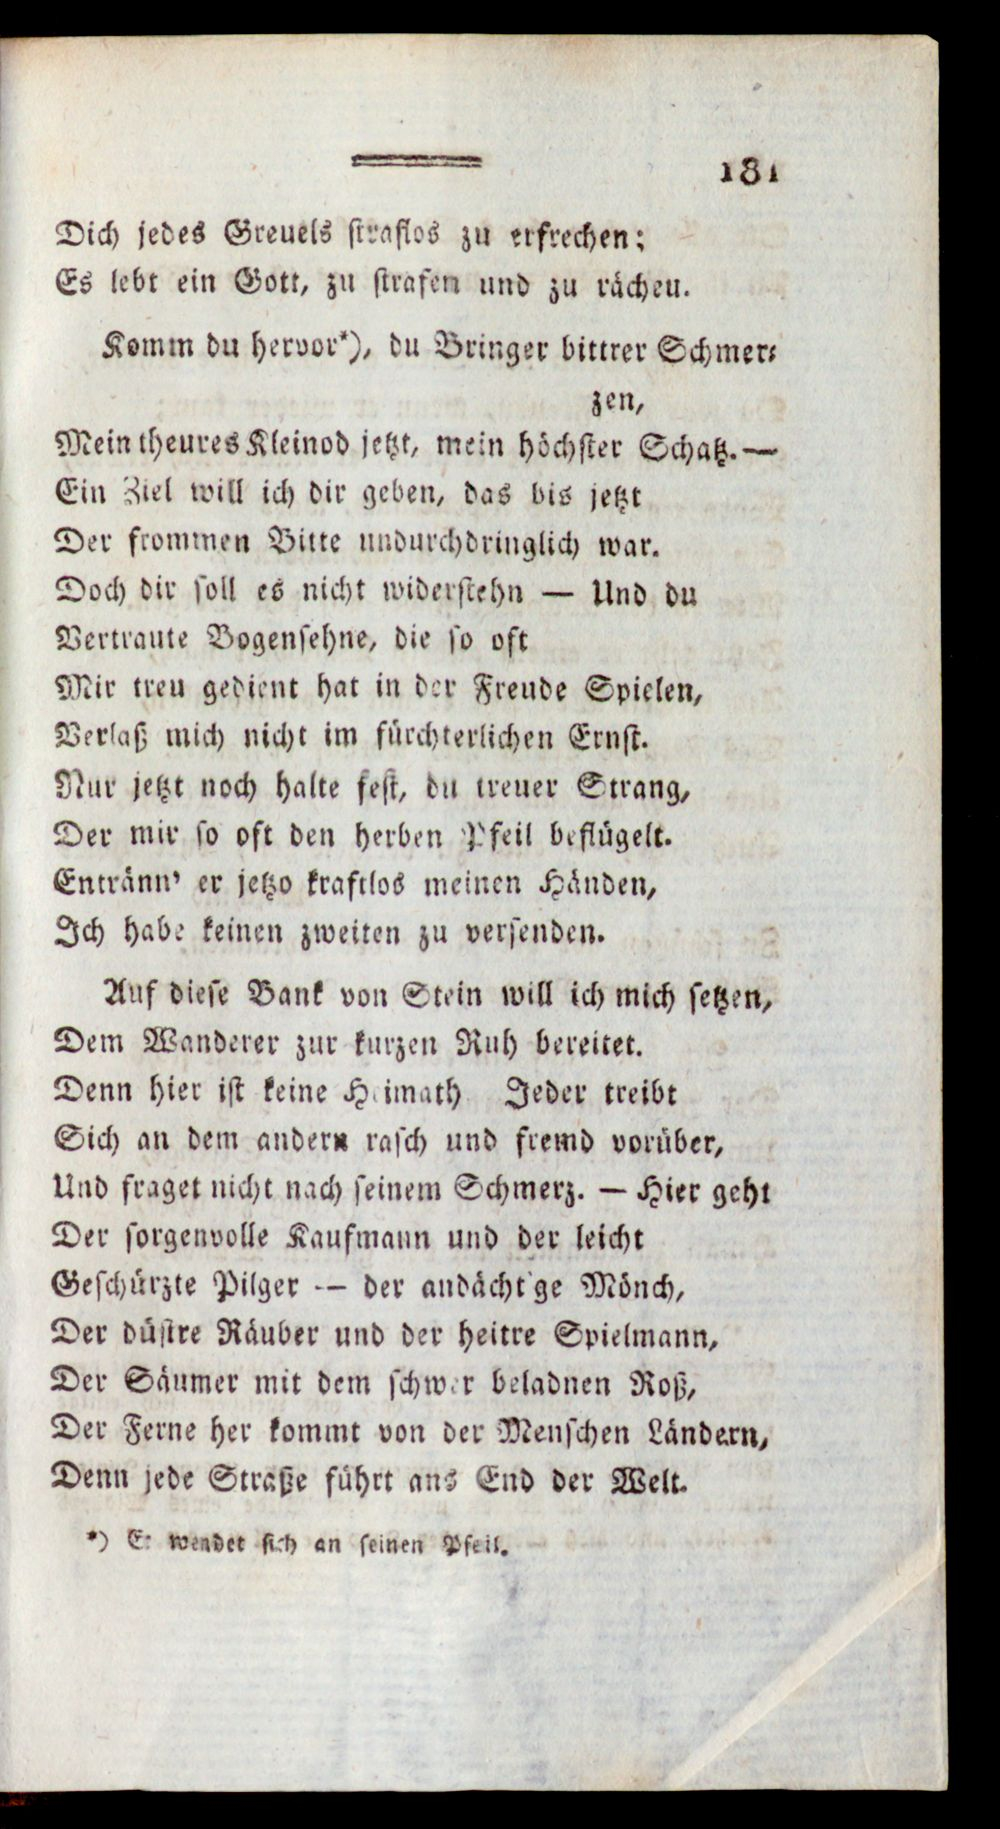 181
Dich jedes Greuels straflos zu erfrechen;
Es lebt ein Gott, zu strafen und zu rächen.
Komm du hervor*), du Bringer bittrer Schmer-
zen,
Mein theures Kleinod jetzt, mein höchster Schatz. —
Ein Ziel will ich dir geben, das bis jetzt
Der frommen Bitte undurchdringlich war.
Doch dir soll es nicht widerstehn — Und du
Vertraute Bogensehne, die so oft
Mir treu gedient hat in der Freude Spielen,
Verlaß mich nicht im fürchterlichen Ernst.
Nur jetzt noch halte fest, du treuer Strang,
Der mir so oft den herben Pfeil beflügelt.
Entränn' er jetzo kraftlos meinen Händen,
Ich habe keinen zweiten zu versenden.
Auf diese Bank von Stein will ich mich setzen,
Dem Wanderer zur kurzen Ruh bereitet.
Denn hier ist keine Heimath Jeder treibt
Sich an dem andern rasch und fremd vorüber,
Und fraget nicht nach seinem Schmerz. — Hier geht
Der sorgenvolle Kaufmann und der leicht
Geschürzte Pilger — der andächt'ge Mönch,
Der düstre Räuber und der heitre Spielmann,
Der Säumer mit dem schwer beladnen Roß,
Der Ferne her kommt von der Menschen Ländern,
Denn jede Straße führt ans End der Welt.
*) Er wendet sich an seinen Pfeil.